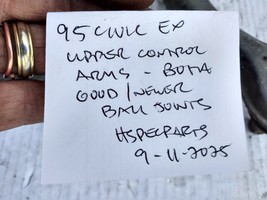 95 CIVIC EX
UPPER CONTROL
ARMS - BOTH
GOOD / NEWER
BALL JOINTS
HSPECPARTS
9-11-2025